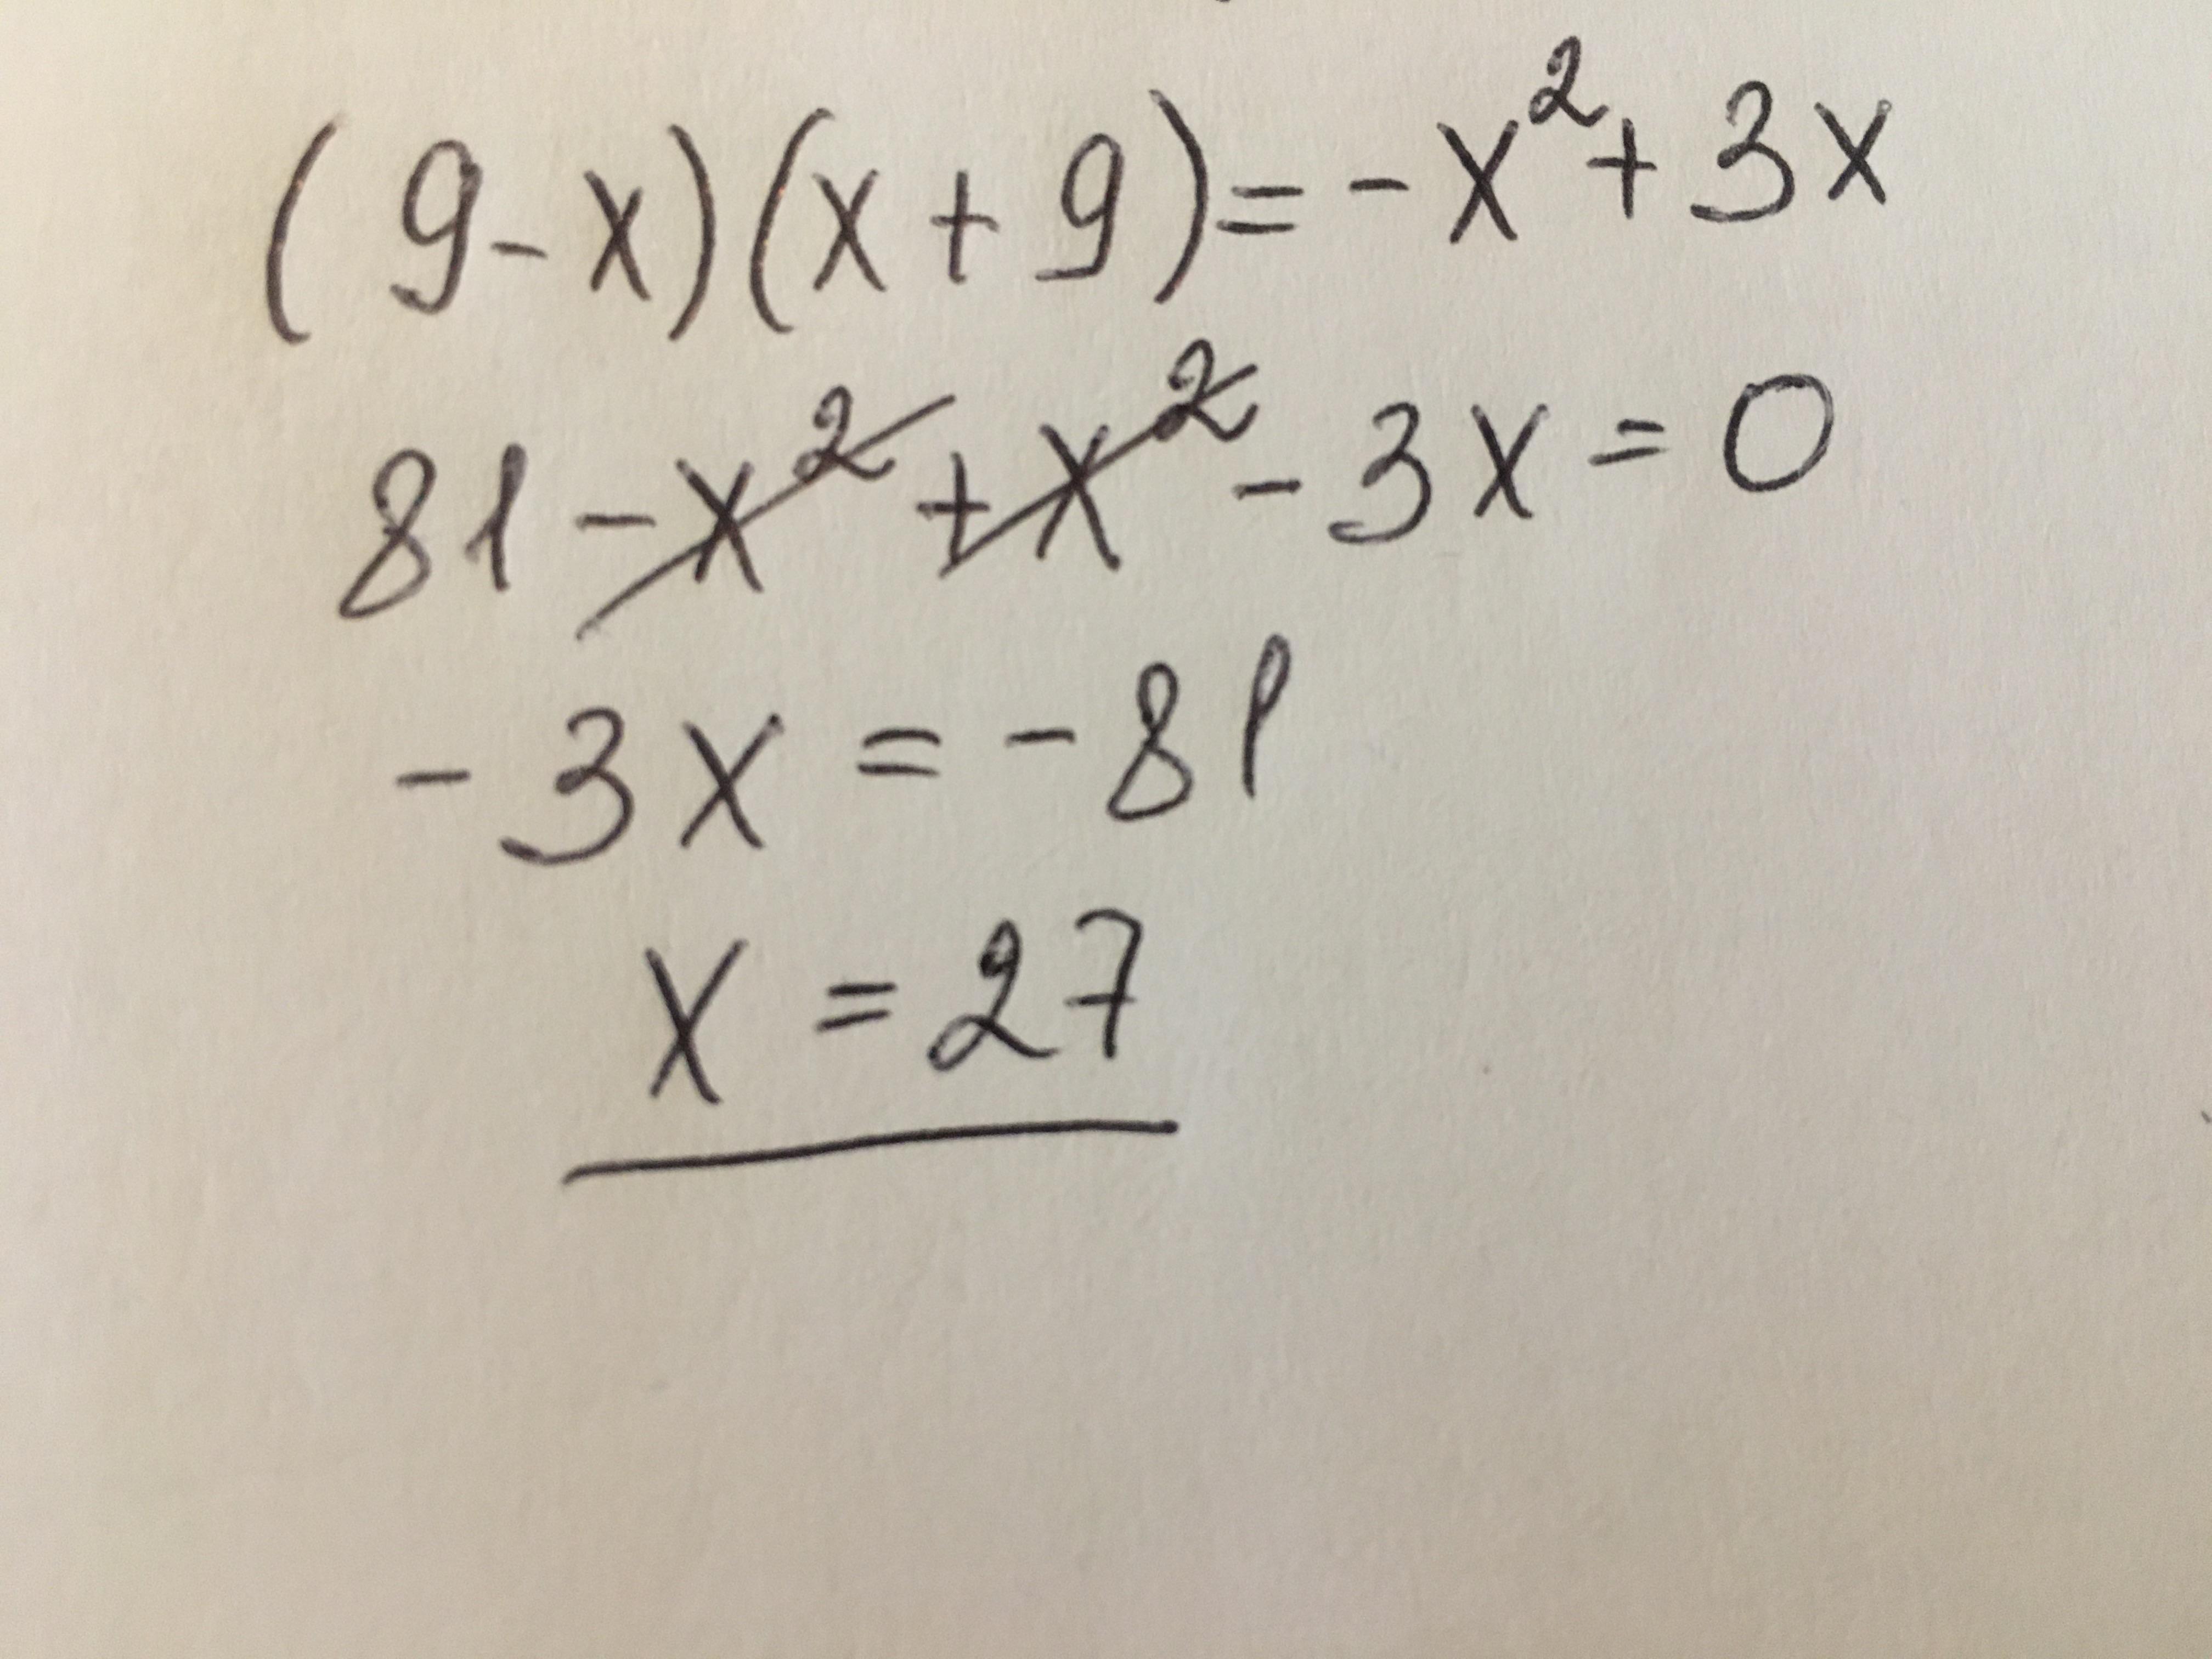 (9-x)(x+9)=-x²+3x
81-x²+x²-3x=0
-3x=-81
x=27